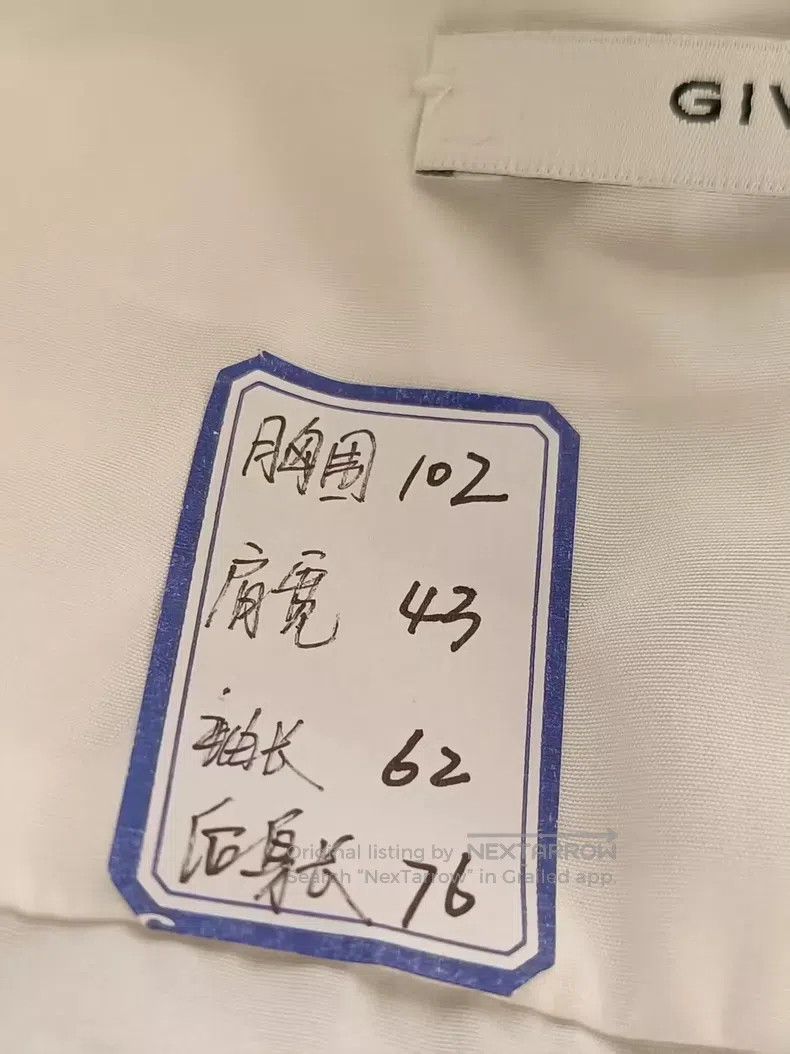 GIV
胸围 102
肩宽 43
袖长 62
后身长 76
Original listing by NEXTARROW
Search "NexTarrow" in Grailed app